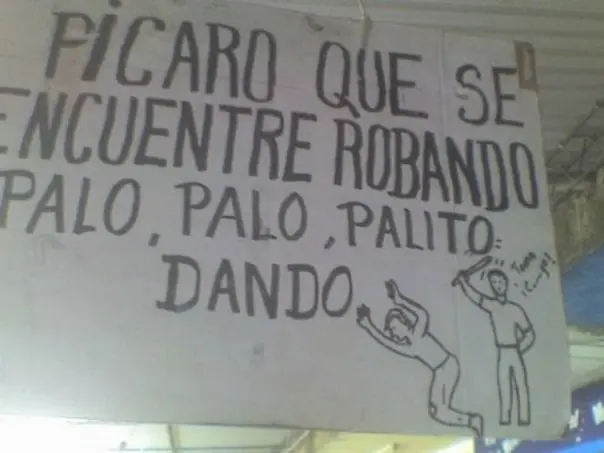 PÍCARO QUE SE
ENCUENTRE ROBANDO
PALO, PALO, PALITO
DANDO.
Toma